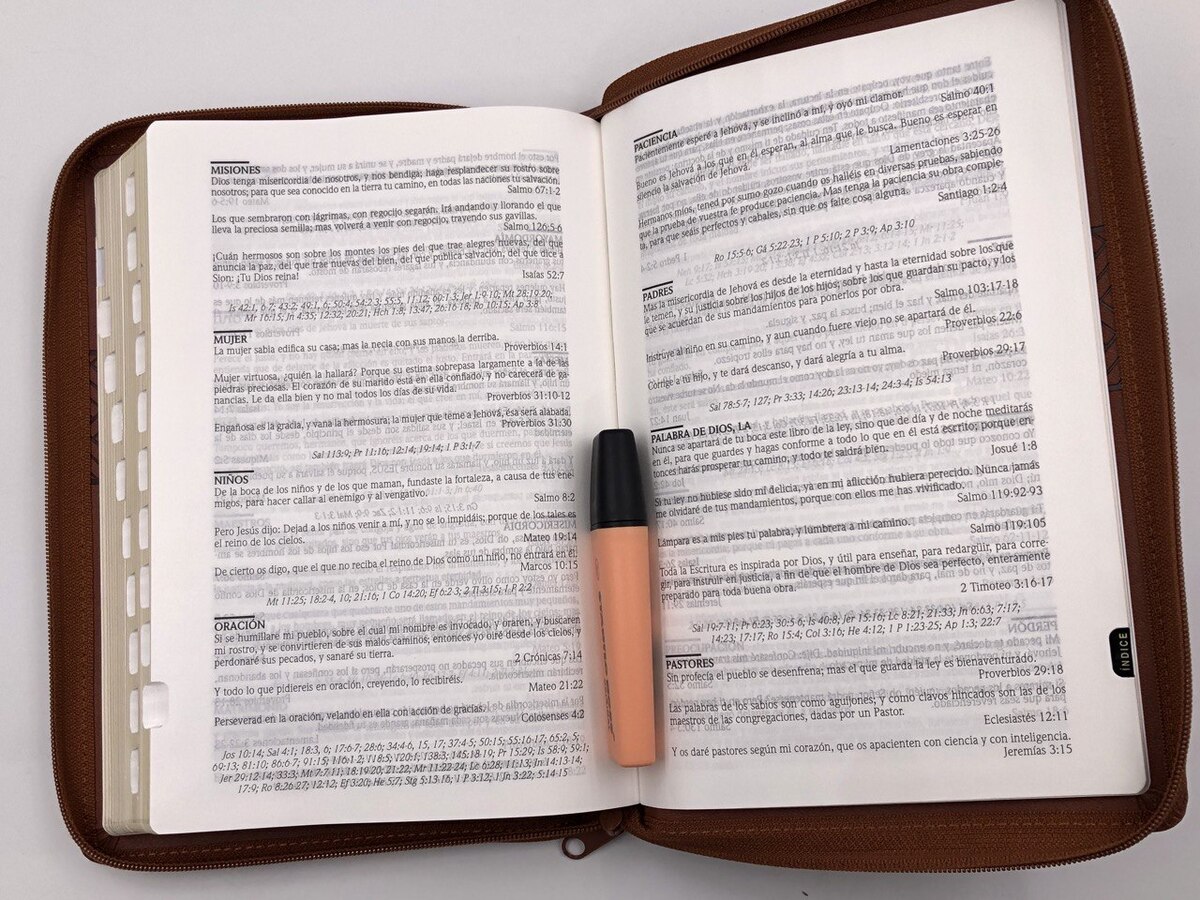 MISIONES
Dios tenga misericordia de nosotros, y nos bendiga; haga resplandecer su rostro sobre
nosotros; para que sea conocido en la tierra tu camino, en todas las naciones tu salvación.
Salmo 67:1-2
Los que sembraron con lágrimas, con regocijo segarán. Irá andando y llorando el que
lleva la preciosa semilla; mas volverá a venir con regocijo, trayendo sus gavillas.
Salmo 126:5-6
¡Cuán hermosos son sobre los montes los pies del que trae alegres nuevas, del que
anuncia la paz, del que trae nuevas del bien, del que publica salvación, del que dice a
Sion: ¡Tu Dios reina!
Isaías 52:7
Is 42:1, 6 7; 43:2; 49:1, 6; 50:4; 54:2-3; 55:5, 11,12; 60:1-3; Jer 1:9-10; Mt 28:19,20;
Mr 16:15; Jn 4:35; 12:32; 20:21; Hch 1:8; 13:47; 26:16-18; Ro 10:15; Ap 3:8
MUJER
La mujer sabia edifica su casa; mas la necia con sus manos la derriba.
Proverbios 14:1
Mujer virtuosa, ¿quién la hallará? Porque su estima sobrepasa largamente a la de las
piedras preciosas. El corazón de su marido está en ella confiado, y no carecerá de ga-
nancias. Le da ella bien y no mal todos los días de su vida.
Proverbios 31:10-12
Engañosa es la gracia, y vana la hermosura; la mujer que teme a Jehová, ésa será alabada.
Proverbios 31:30
Sal 113:9; Pr 11:16; 12:14; 19:14; 1 P 3:1-7
NIÑOS
De la boca de los niños y de los que maman, fundaste la fortaleza, a causa de tus ene-
migos, para hacer callar al enemigo y al vengativo.
Salmo 8:2
Pero Jesús dijo: Dejad a los niños venir a mí, y no se lo impidáis; porque de los tales es
el reino de los cielos.
Mateo 19:14
De cierto os digo, que el que no reciba el reino de Dios como un niño, no entrará en él.
Marcos 10:15
Mt 11:25; 18:2-4, 10; 21:16; 1 Co 14:20; Ef 6:2 3; 2 Ti 3:15; 1 P 2:2
ORACIÓN
Si se humillare mi pueblo, sobre el cual mi nombre es invocado, y oraren, y buscaren
mi rostro, y se convirtieren de sus malos caminos; entonces yo oiré desde los cielos, y
perdonaré sus pecados, y sanaré su tierra.
2 Crónicas 7:14
Y todo lo que pidiereis en oración, creyendo, lo recibiréis.
Mateo 21:22
Perseverad en la oración, velando en ella con acción de gracias.
Colosenses 4:2
Jos 10:14; Sal 4:1; 18:3, 6; 17:6-7; 28:6; 34:4-6, 15, 17; 37:4-5; 50:15; 55:16-17; 65:2, 5;
69:13; 81:10; 86:6-7; 91:15; 116:1-2; 118:5; 120:1; 138:3; 145:18-19; Pr 15:29; Is 58:9; 59:1;
Jer 29:12-14; 33:3; Mt 7:7-11; 18:19-20; 21:22; Mr 11:22-24; Lc 6:28; 11:13; Jn 14:13-14;
17:9; Ro 8:26-27; 12:12; Ef 3:20; He 5:7; Stg 5:13-16; 1 P 3:12; 1 Jn 3:22; 5:14-15
PACIENCIA
Pacientemente esperé a Jehová, y se inclinó a mí, y oyó mi clamor.
Salmo 40:1
Bueno es Jehová a los que en él esperan, al alma que le busca. Bueno es esperar en
silencio la salvación de Jehová.
Lamentaciones 3:25-26
Hermanos míos, tened por sumo gozo cuando os halléis en diversas pruebas, sabiendo
que la prueba de vuestra fe produce paciencia. Mas tenga la paciencia su obra comple-
ta, para que seáis perfectos y cabales, sin que os falte cosa alguna.
Santiago 1:2-4
Ro 15:5-6; Gá 5:22-23; 1 P 5:10; 2 P 3:9; Ap 3:10
PADRES
Mas la misericordia de Jehová es desde la eternidad y hasta la eternidad sobre los que
le temen, y su justicia sobre los hijos de los hijos; sobre los que guardan su pacto, y los
que se acuerdan de sus mandamientos para ponerlos por obra.
Salmo 103:17-18
Instruye al niño en su camino, y aun cuando fuere viejo no se apartará de él.
Proverbios 22:6
Corrige a tu hijo, y te dará descanso, y dará alegría a tu alma.
Proverbios 29:17
Sal 78:5-7; 127; Pr 3:33; 14:26; 23:13-14; 24:3-4; Is 54:13
PALABRA DE DIOS, LA
Nunca se apartará de tu boca este libro de la ley, sino que de día y de noche meditarás
en él, para que guardes y hagas conforme a todo lo que en él está escrito; porque en-
tonces harás prosperar tu camino, y todo te saldrá bien.
Josué 1:8
Si tu ley no hubiese sido mi delicia, ya en mi aflicción hubiera perecido. Nunca jamás
me olvidaré de tus mandamientos, porque con ellos me has vivificado.
Salmo 119:92-93
Lámpara es a mis pies tu palabra, y lumbrera a mi camino.
Salmo 119:105
Toda la Escritura es inspirada por Dios, y útil para enseñar, para redargüir, para corre-
gir, para instruir en justicia, a fin de que el hombre de Dios sea perfecto, enteramente
preparado para toda buena obra.
2 Timoteo 3:16-17
Sal 19:7-11; Pr 6:23; 30:5-6; Is 40:8; Jer 15:16; Lc 8:21; 21:33; Jn 6:63; 7:17;
14:23; 17:17; Ro 15:4; Col 3:16; He 4:12; 1 P 1:23-25; Ap 1:3; 22:7
PASTORES
Sin profecía el pueblo se desenfrena; mas el que guarda la ley es bienaventurado.
Proverbios 29:18
Las palabras de los sabios son como aguijones; y como clavos hincados son las de los
maestros de las congregaciones, dadas por un Pastor.
Eclesiastés 12:11
Y os daré pastores según mi corazón, que os apacienten con ciencia y con inteligencia.
Jeremías 3:15
ÍNDICE